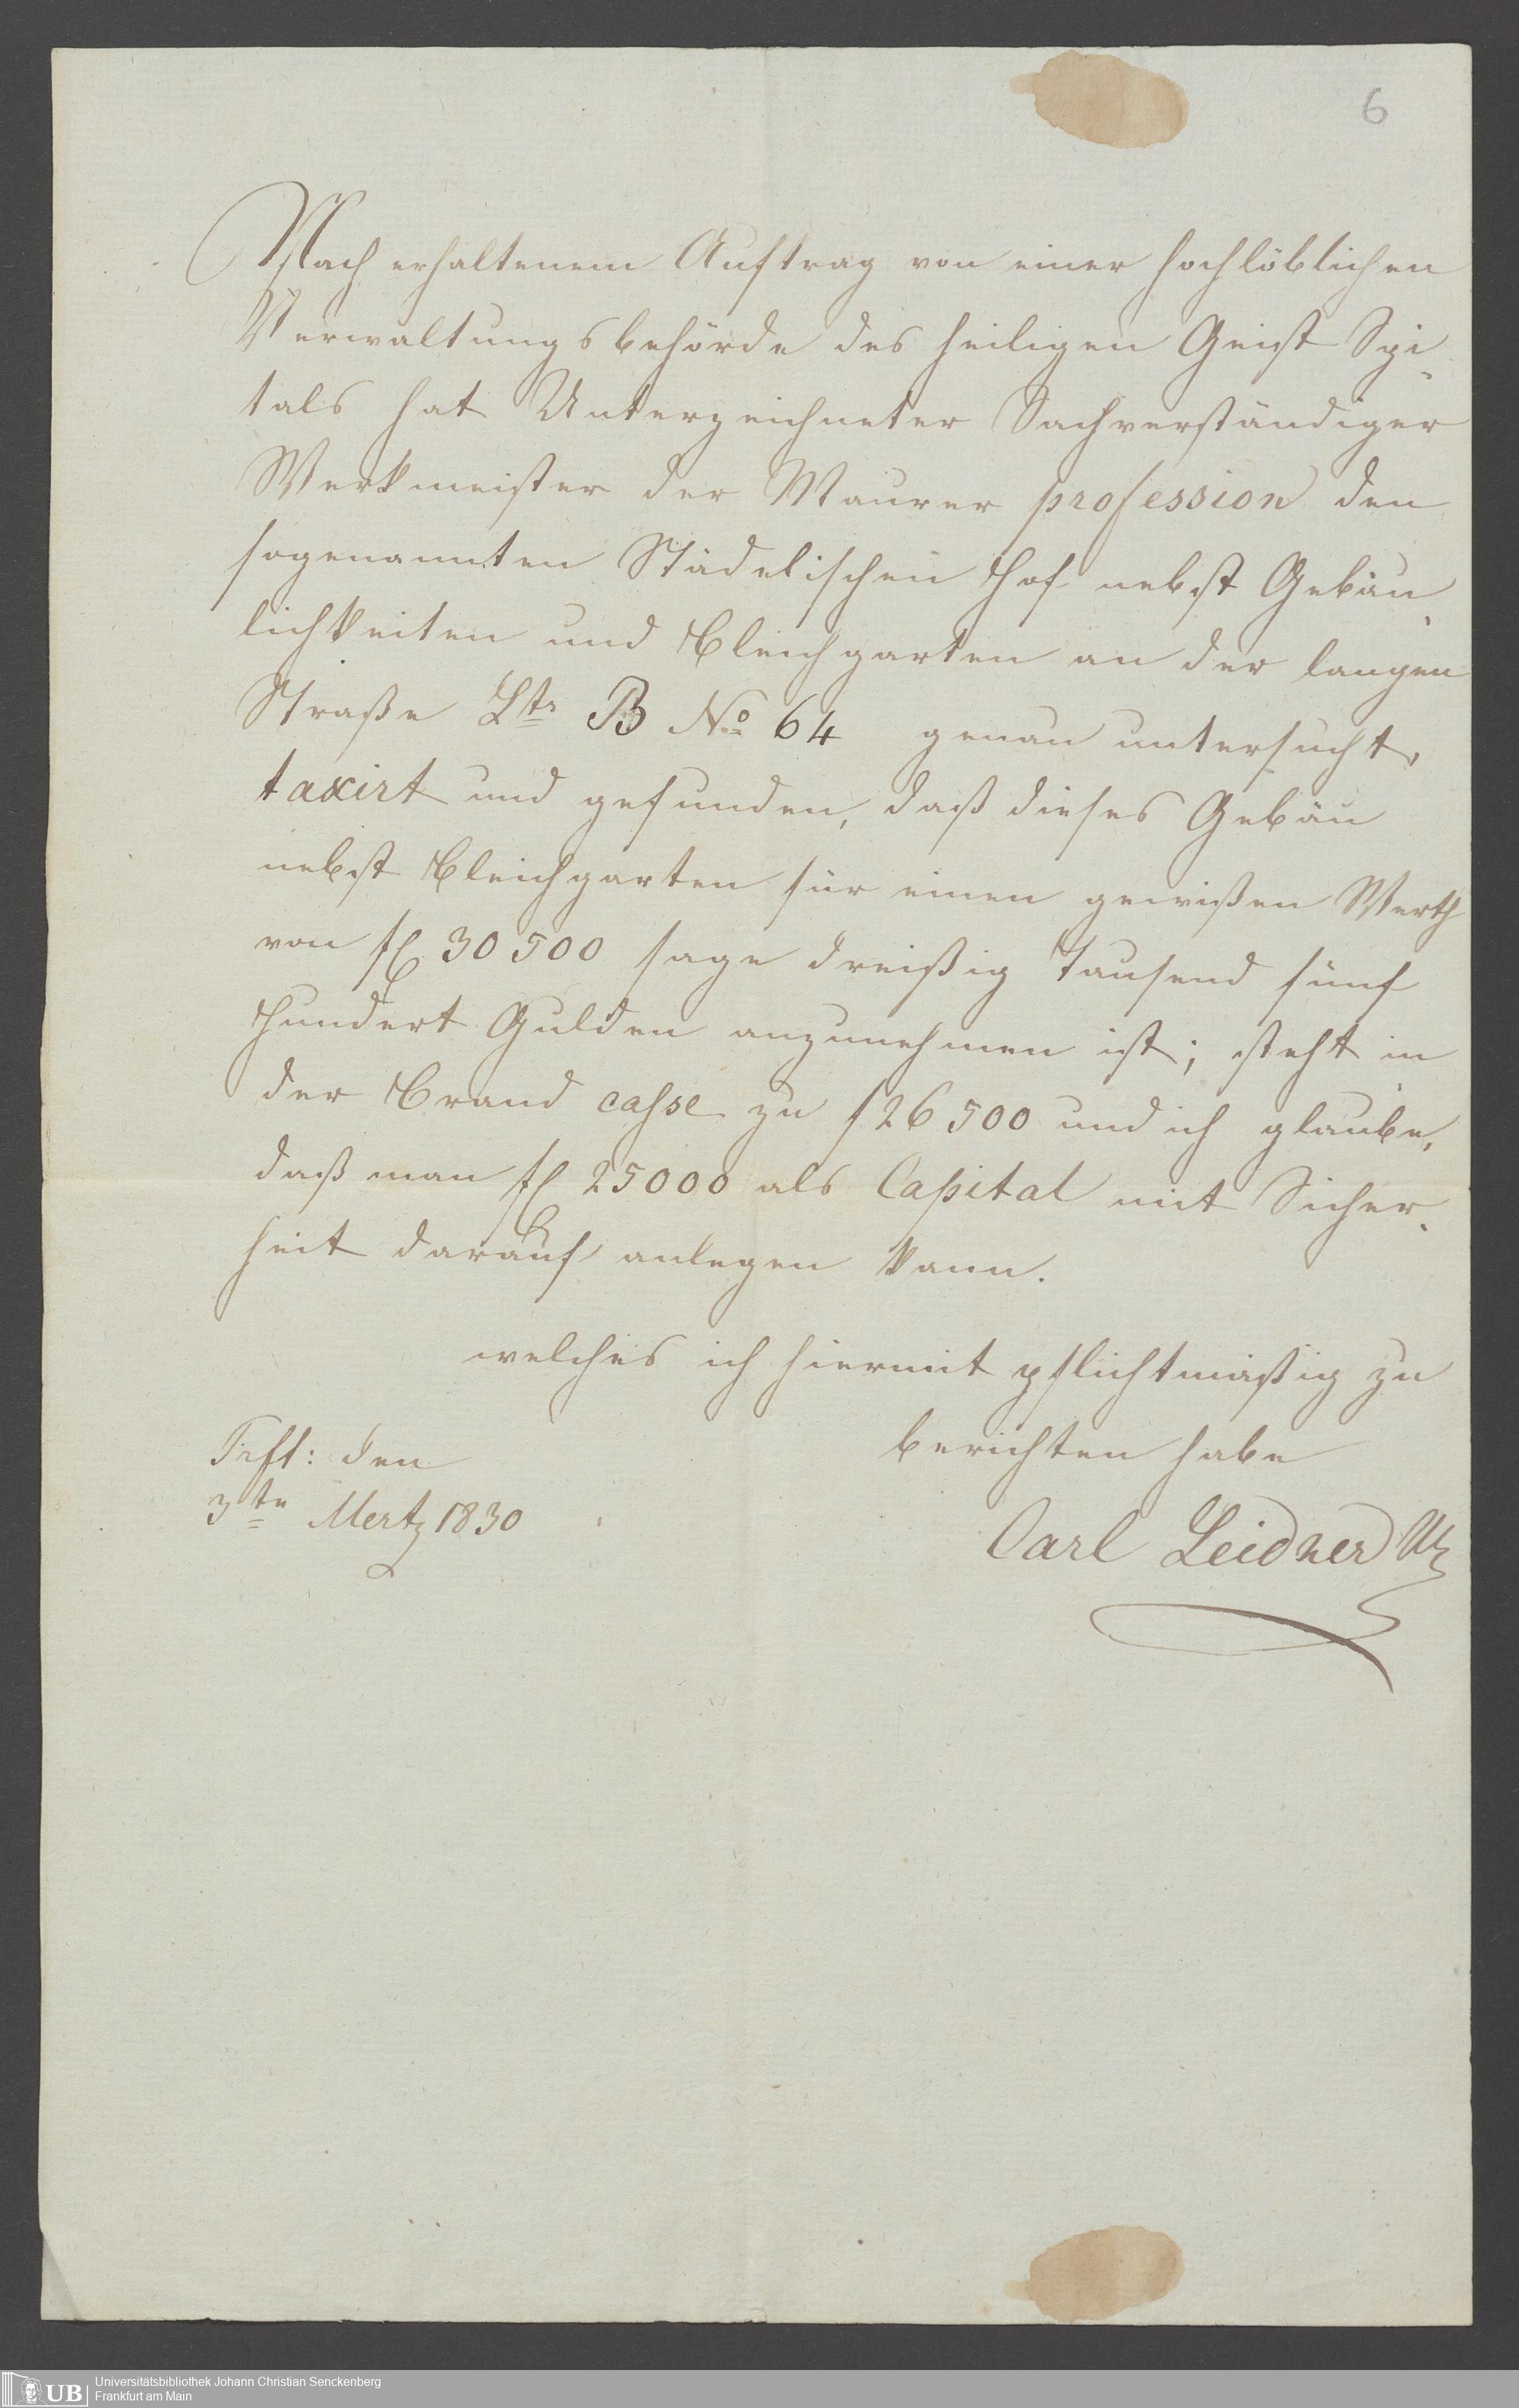 6
Nach erhaltenem Auftrag von einer hochlöblichen
Verwaltungsbehörde des heiligen Geist Spi
tals hat Unterzeichneter Sachverständiger
Werkmeister der Maurer profession den
sogenannten Städelischen Hof nebst Gebäu
lichkeiten und Bleichgarten an der langen
Straße Ltr B No 64 genau untersucht,
taxirt und gefunden, daß dieses Gebäu
nebst Bleichgarten für einen gewißen Werth
von fl 30500 sage dreißig Tausend fünf
Hundert Gulden anzunehmen ist; steht in
der Brand casse zu f 26500 und ich glaube,
daß man fl 25000 als Capital mit Sicher
heit darauf anlegen kann.
welches ich hiermit pflichtmäßig zu
berichten habe
Frft: den
3te Mertz 1830
Carl Leidner
UB
Universitätsbibliothek Johann Christian Senckenberg
Frankfurt am Main